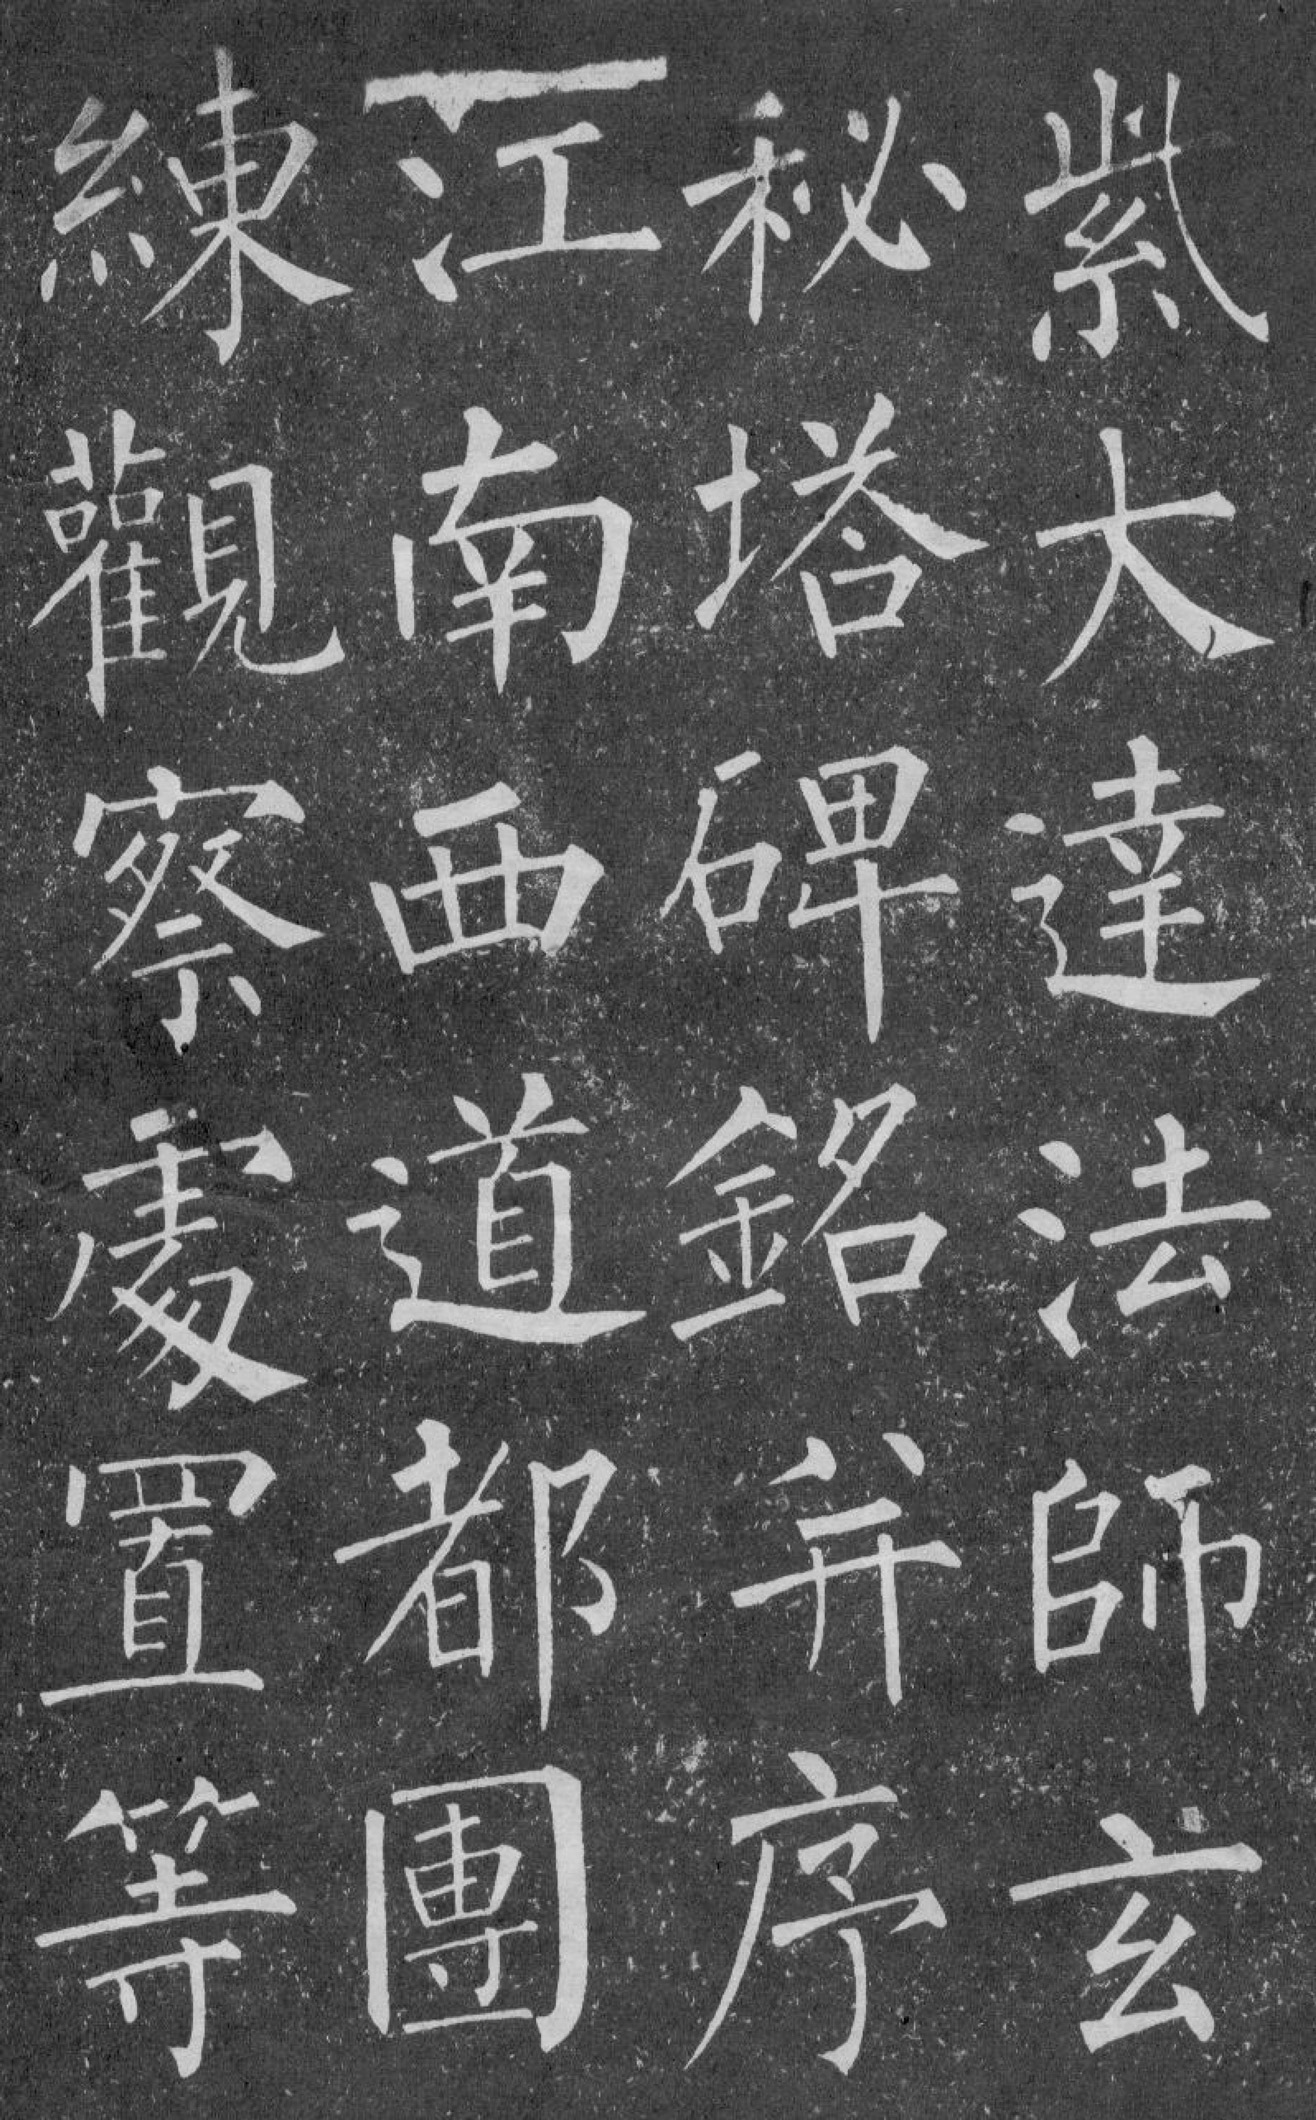 紫大達法師玄
秘塔碑銘并序
江南西道都團
練觀察處置等